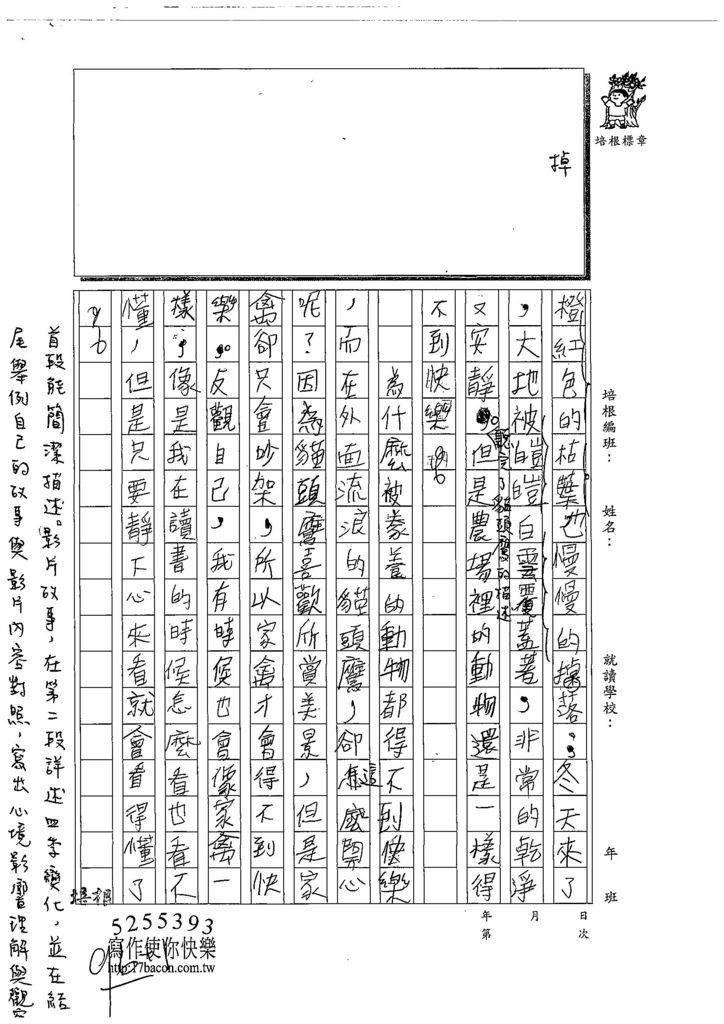 掉
培根標章
橙紅色的枯葉也慢慢的掉落,冬天來了
,大地被皚皚白雲覆蓋著,非常的乾淨
又安靜。但是農場裡的動物還是一樣得
聽完了貓頭鷹的描述
不到快樂。
為什麼被豢養的動物都得不到快樂
,而在外面流浪的貓頭鷹,卻這麼開心
呢?因為貓頭鷹喜歡欣賞美景,但是家
禽卻只會吵架,所以家禽才會得不到快
樂。反觀自己,我有時候也會像家禽一
樣,像是我在讀書的時候怎麼看也看不
懂,但是只要靜下心來看就會看得懂了
首段能簡潔描述影片故事,在第二段詳述四季變化,並在結
尾舉例自己的故事與影片內容對照,寫出心境影響理解與觀察
培根編班:
姓名:
就讀學校:
年 班
日次
月
年第
培根
5255393
寫作使你快樂
http:17bacon.com.tw